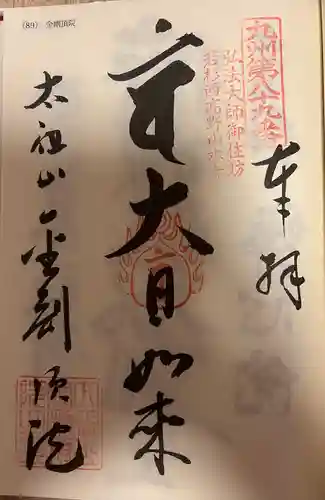 奉拝
九州第八十九番
弘法大師御住坊
大日如来
(89) 金剛頂院
太祖山 金剛頂院